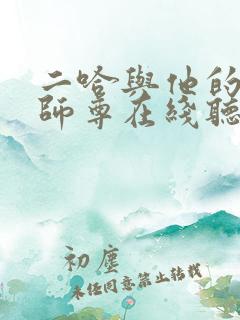 二哈與他的
師尊在綫聽
初塵
未任同意禁止转载